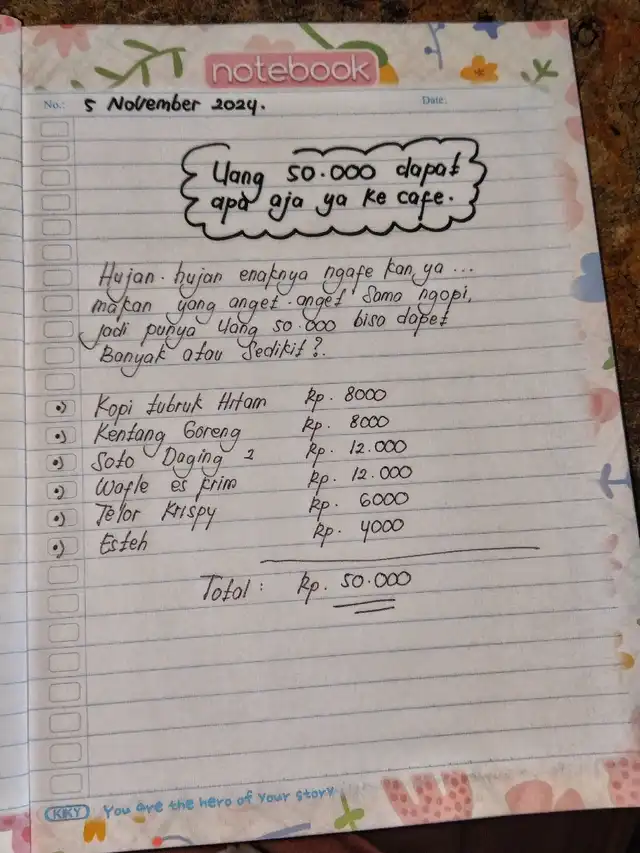 notebook
No.: 5 November 2024. Date:
Uang 50.000 dapat
apa aja ya ke cafe.
Hujan-hujan enaknya ngafe kan ya ...
makan yang anget-anget sama ngopi,
jadi punya Uang 50.000 bisa dapet
Banyak atau Sedikit?.
•) Kopi tubruk Hitam Rp. 8000
•) Kentang Goreng Rp. 8000
•) Soto Daging 2 Rp. 12.000
•) Wafle es krim Rp. 12.000
•) Telor Krispy Rp. 6000
•) Esteh Rp. 4000
Total : Rp. 50.000
KKY You are the hero of Your story